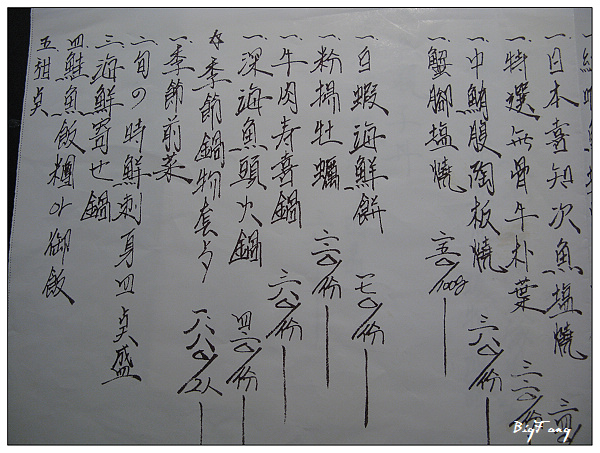 一日本喜知次魚塩燒
一特選無骨牛朴葉 三二〇/份
一中鮪腹陶板燒 三六〇/份
一蟹腳塩燒 三五〇/100g
一白蝦海鮮餅 一七〇/份
一粉揚牡蠣 二六〇/份
一牛肉寿喜鍋 二六〇/份
一深海魚頭火鍋 四二〇/份
☆季節鍋物套歺 一六八〇/2人
一季節前菜
二旬の時鮮刺身四点盛
三海鮮寄せ鍋
四鮭魚飯糰or御飯
五甜点
BigFang